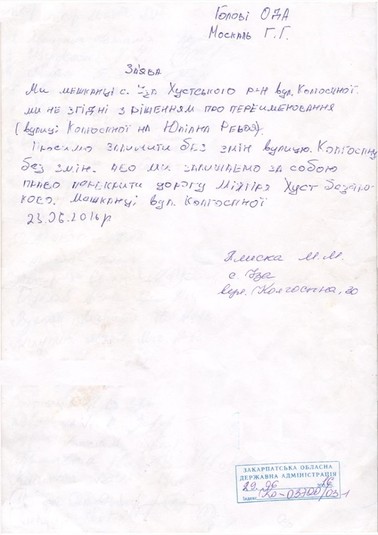 Голові ОДА
Москаль Г.Г.
Заява
Ми мешканці с. Іза Хустського р-н вул. Колгоспної.
ми не згідні з рішенням про перейменовання
(вулиці Колгоспної на Юліана Ревая).
Просимо залишити без змін вулицю. Колгоспну
без змін. Або ми залишаємо за собою
право перекрити дорогу Міжгіря Хуст
Мешканці вул. Колгоспної
23.06.2016 р
Плиска М.М.
с Іза
вул. Колгоспна, 20
ЗАКАРПАТСЬКА ОБЛАСНА
ДЕРЖАВНА АДМІНІСТРАЦІЯ
29. 06 16